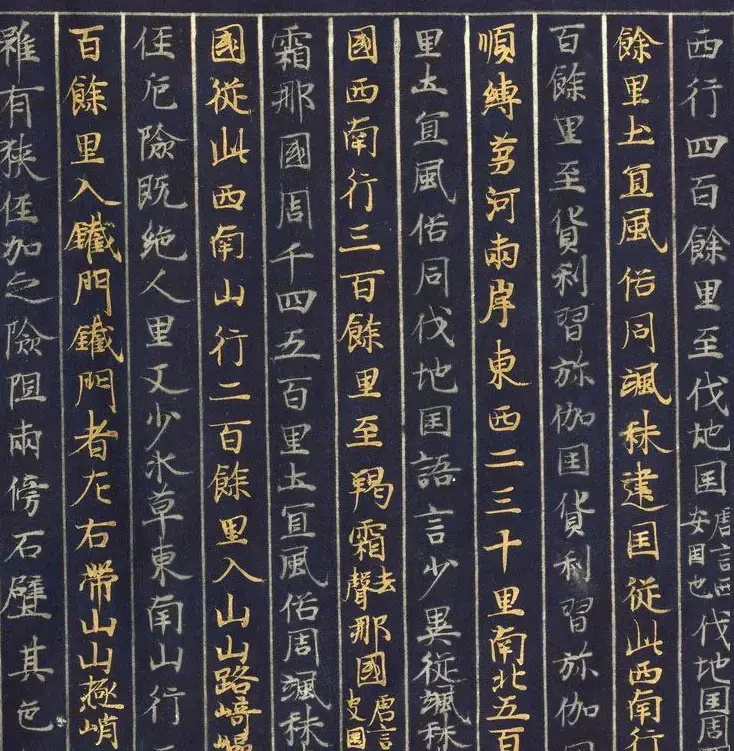 西行四百餘里至伐地国唐言西安国也伐地国周
餘里土冝風俗同颯秣建国從此西南行
百餘里至貨利習弥伽国貨利習弥伽
順縛芻河兩岸東西二三十里南北五百
里土冝風俗同伐地国語言少異從颯秣
國西南行三百餘里至羯霜去聲那國唐言史國
霜那國周千四五百里土冝風俗周颯秣
國從此西南山行二百餘里入山山路﨑
侄危險既絶人里又少水草東南山行
百餘里入鐵門鐵門者左右帶山山極峭
雖有狹侄加之險阻兩傍石壁其色